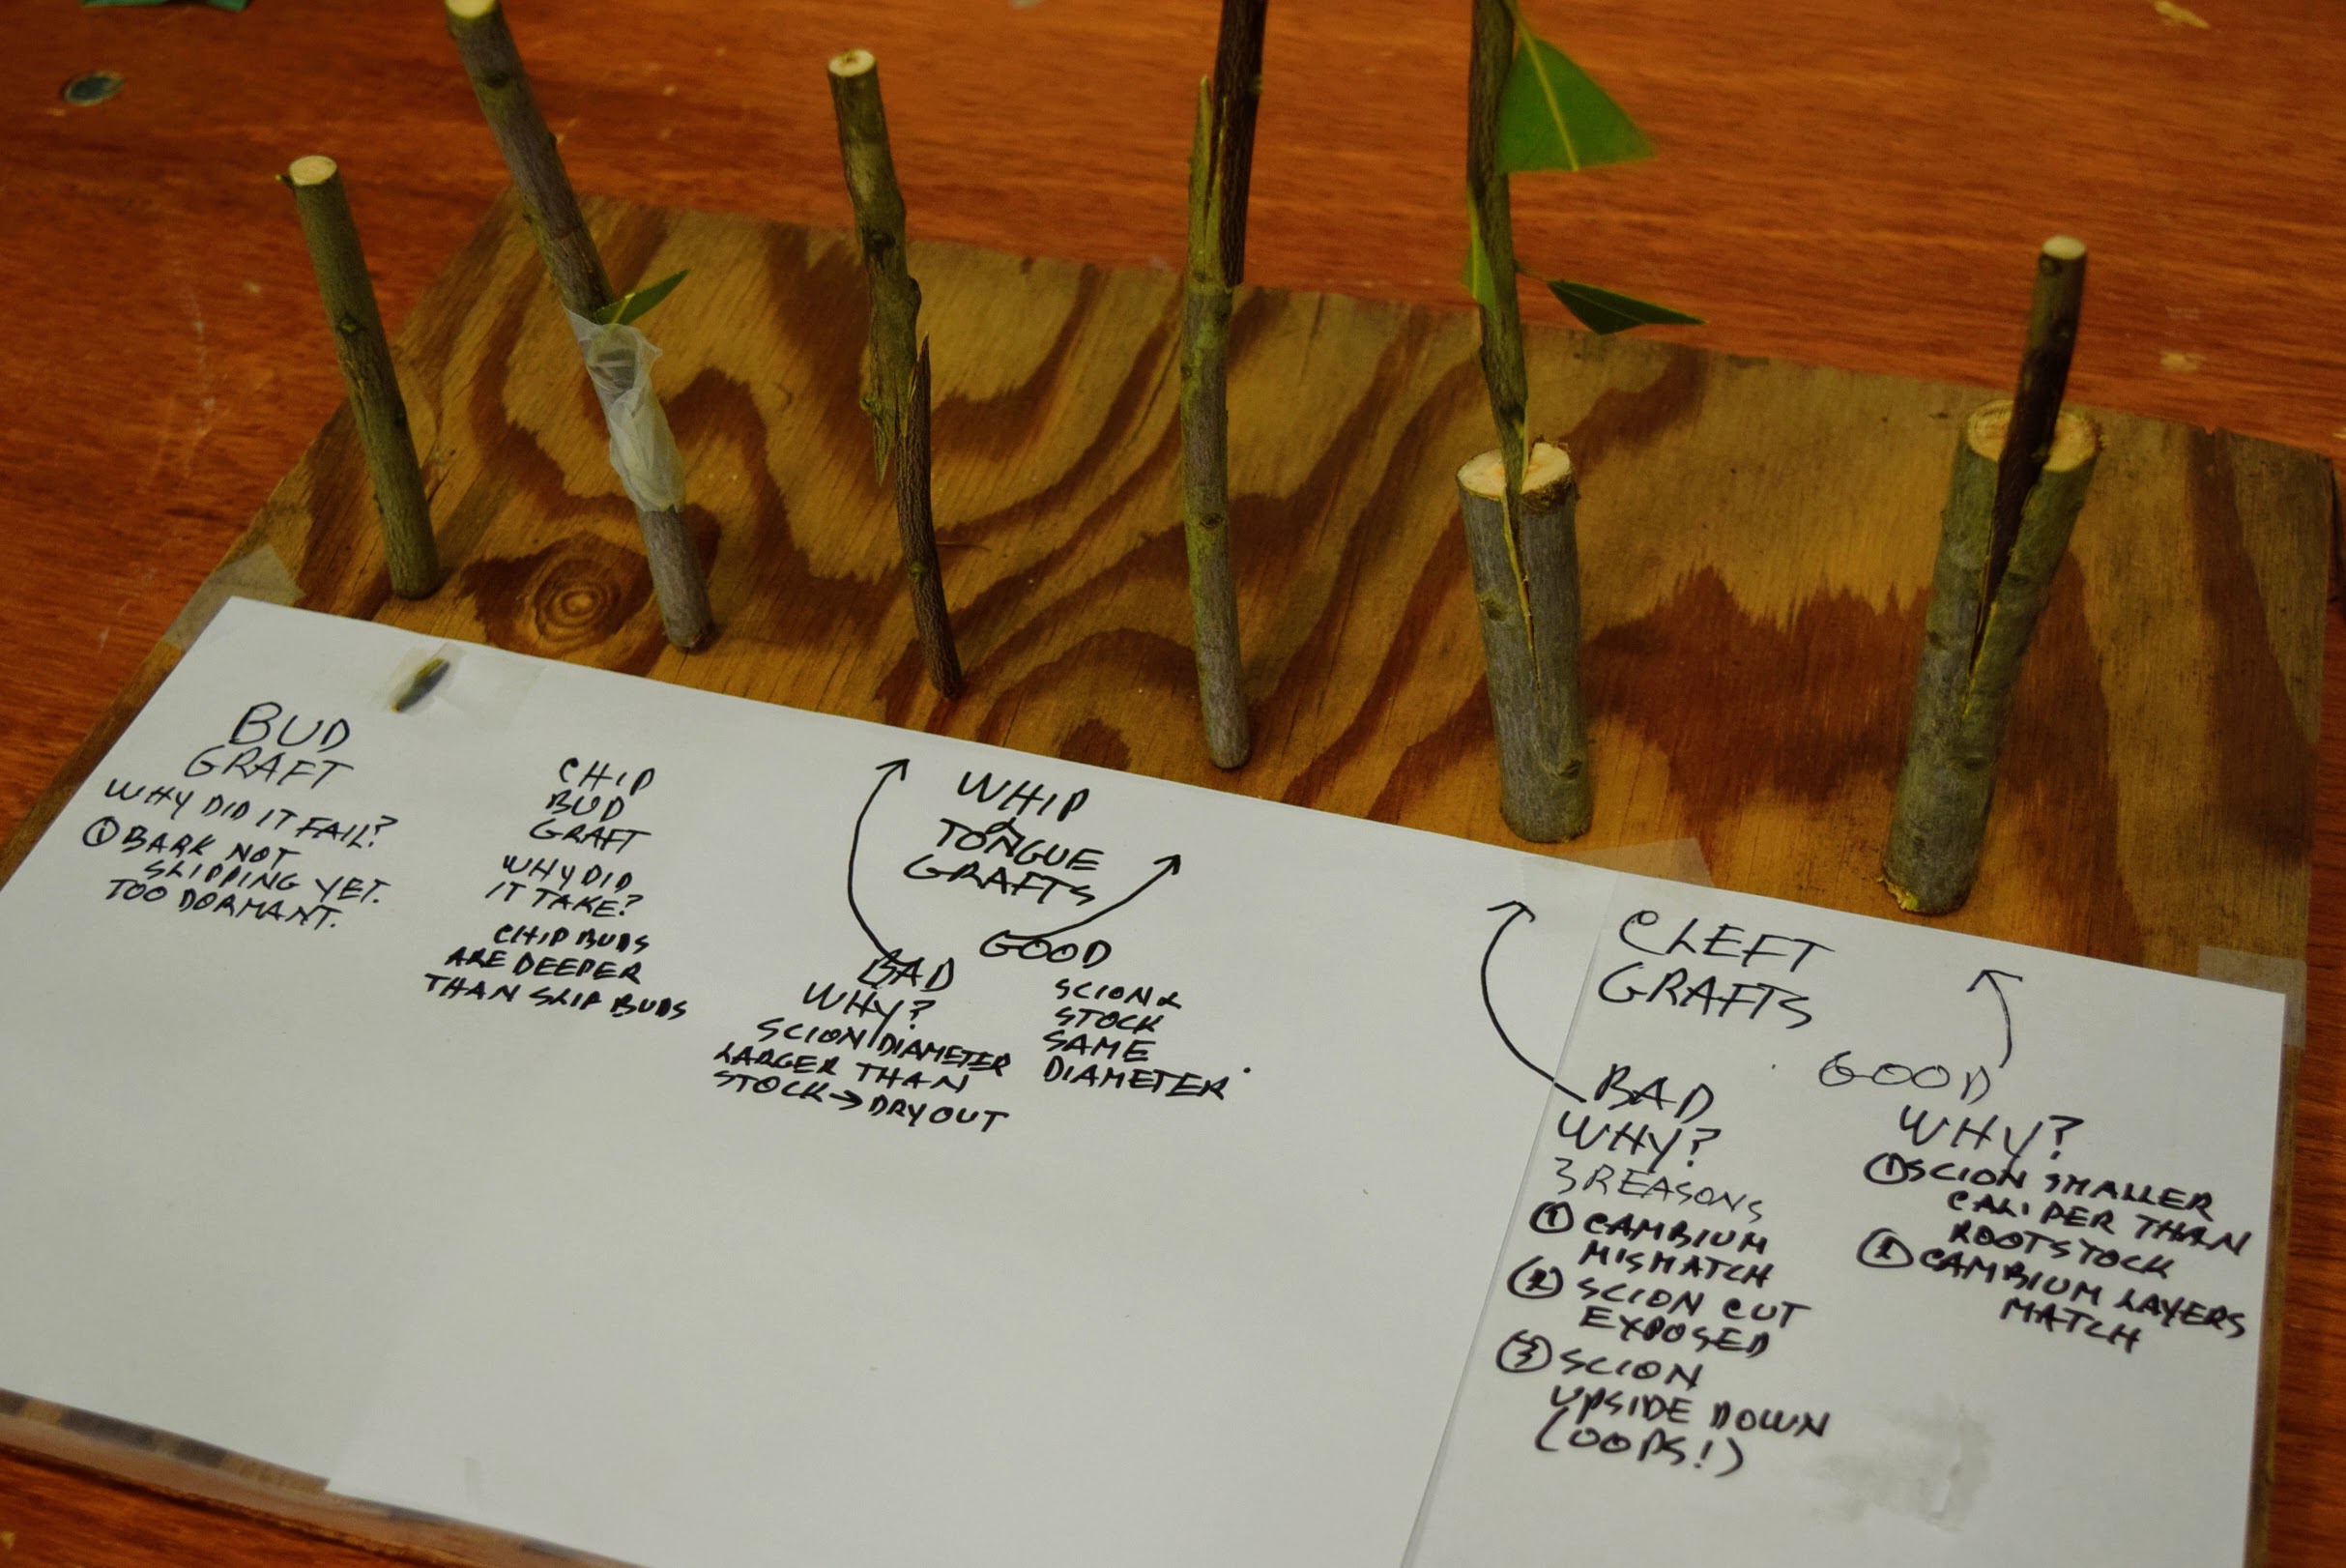 BUD
GRAFT
WHY DID IT FAIL?
① BARK NOT
SLIPPING YET.
TOO DORMANT.
CHIP
BUD
GRAFT
WHY DID
IT TAKE?
CHIP BUDS
ARE DEEPER
THAN SLIP BUDS
WHIP
&
TONGUE
GRAFTS
BAD
WHY?
SCION DIAMETER
LARGER THAN
STOCK → DRY OUT
GOOD
SCION &
STOCK
SAME
DIAMETER
CLEFT
GRAFTS
BAD
WHY?
3 REASONS
① CAMBIUM
MISMATCH
② SCION CUT
EXPOSED
③ SCION
UPSIDE DOWN
(OOPS!)
GOOD
WHY?
① SCION SMALLER
CALIPER THAN
ROOTSTOCK
② CAMBIUM LAYERS
MATCH